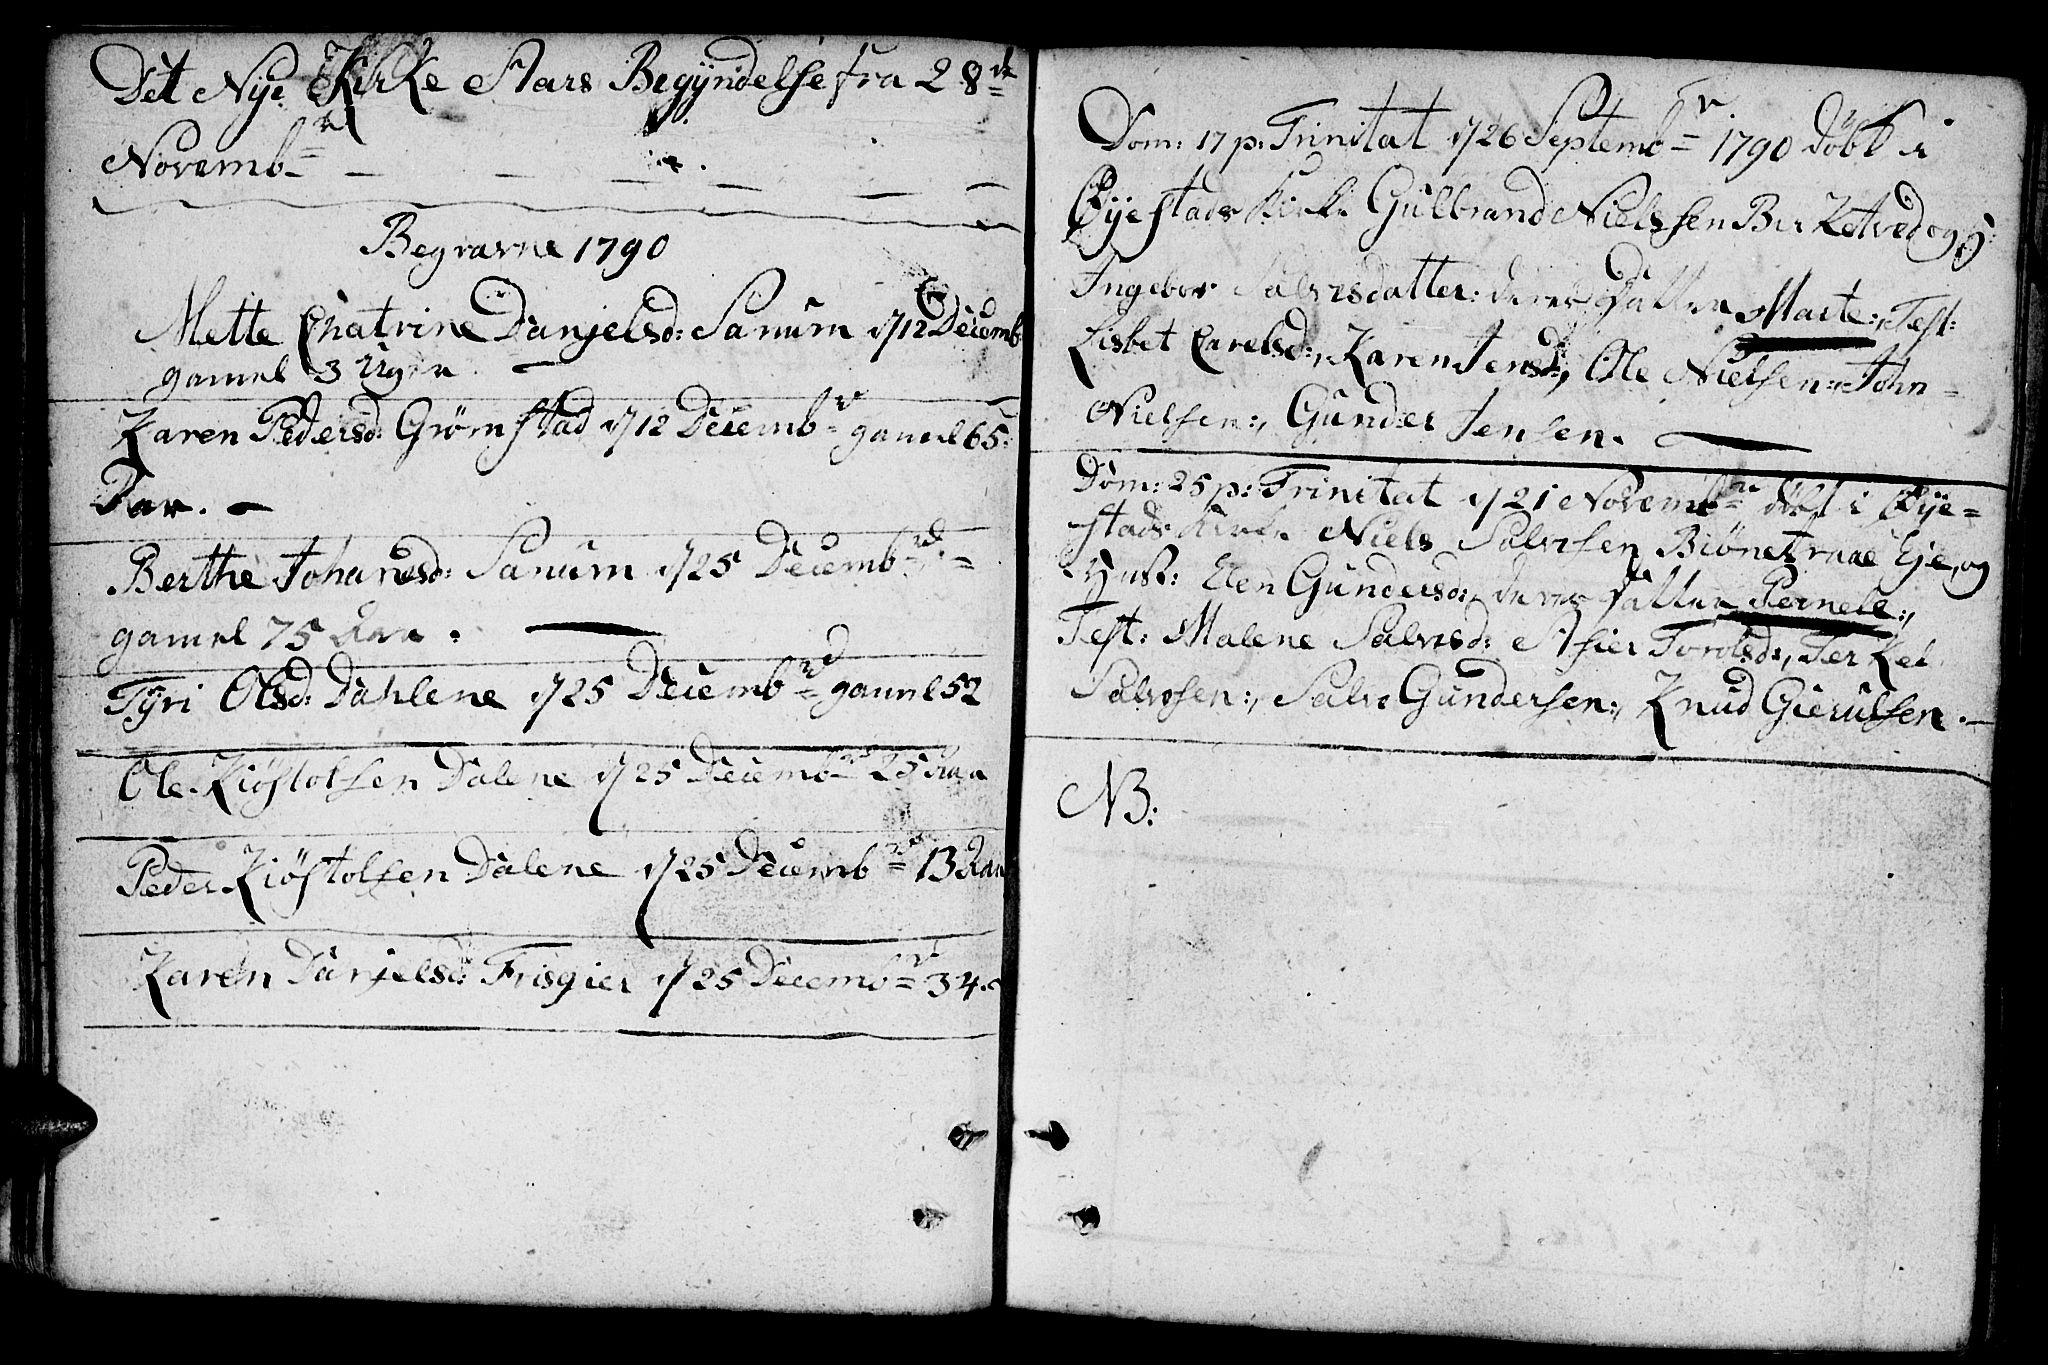 Det Nye Kirke Aars Begÿndelse fra 28de
Novembr
Begravne 1790
Mette Chatrine Danjelsd: Sanum d/12 Decemb
gamel 3 Uger
Karen Pedersd: Grömstad d/12 Decembr gamel 65
Aar.
Berthe Johanesd: Sanum d/25 Decembr
gamel 75 Aar.
Tÿri Olsd: Dahlene d/25 Decembr gamel 52
Ole Kiöstolsen Dalene d/25 Decembr 25 Aar
Peder Kiöstolsen Dalene d/25 Decembr 13 Aar
Karen Danjelsd: Frisgier d/25 Decembr 34
Dom: 17 p: Trinitat d/26 Septembr 1790 döbt i
Öÿestads Kirke Gulbrand Nielssen Birketved og
Ingebor Salvesdatter: deres Datter Marte:, Test:
Lisbet Carelsd:, Karen Jensd:, Ole Nielsen:, John
Nielsen:, Gunder Jensen.
Dom: 25 p: Trinitat d/21 Novembr döbt i Öÿe=
stads Kirke Niels Salvesen Biönetraae Eje, og
Hust: Elen Gundersd:, deres Datter Pernele:,
Test: Malene Salvesd: Asier Torolsd:, Terkel
Salvesen:, Salve Gundersen:, Knud Gierulsen.
NB: